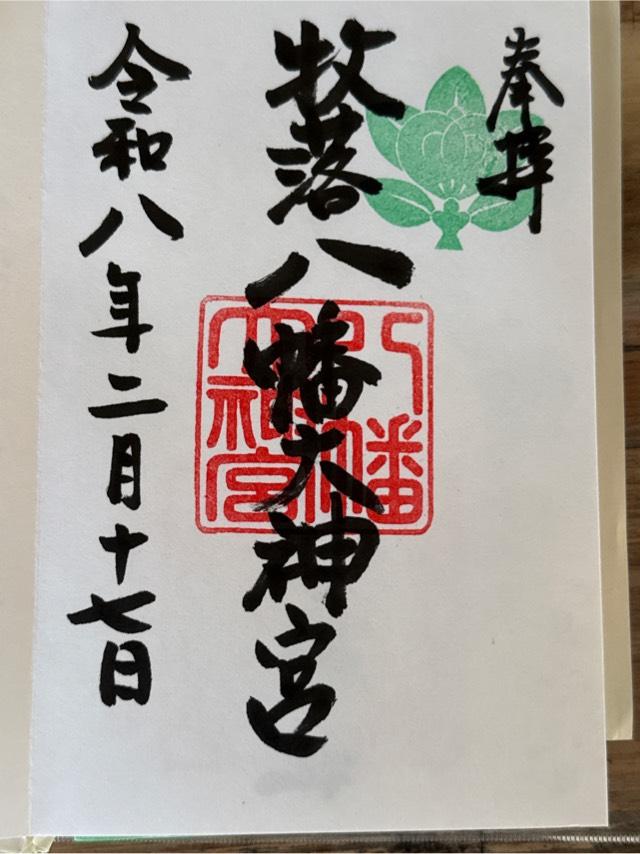 奉拝
牧落八幡大神宮
令和八年二月十七日
八幡
大神宮